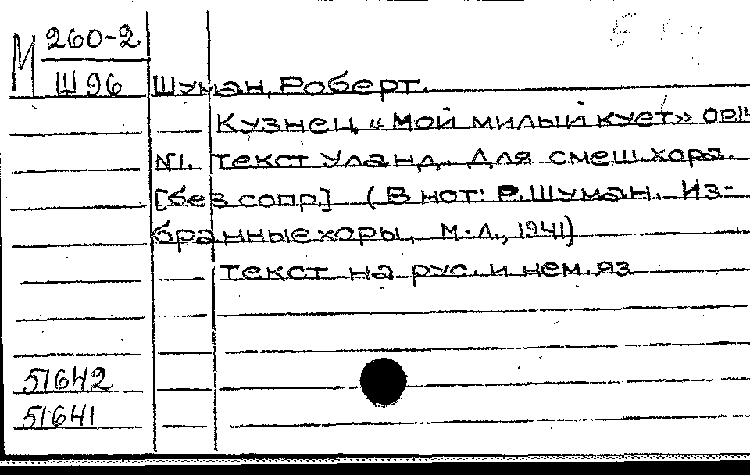 М 260-2
Ш 96
Шуман, Роберт.
Кузнец „Мой милый кует“
№1. Текст Уланд. Для смеш. хора.
[без сопр.] (В нот: Р. Шуман. Из-
бранные хоры. М.-Л., 1941)
Текст на рус. и нем. яз
51642
51641